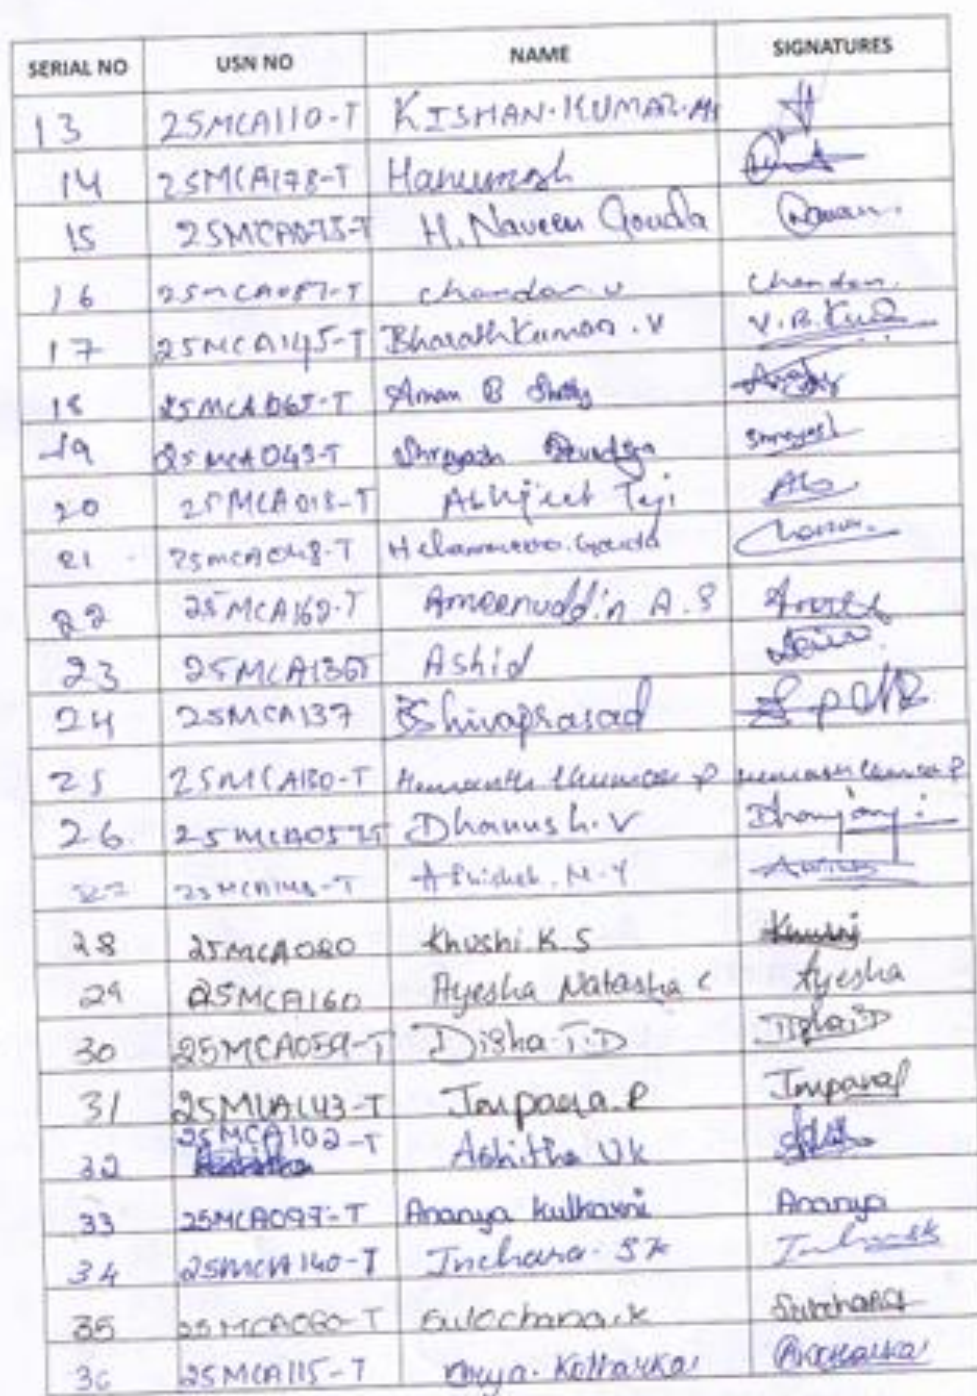 SERIAL NO USN NO NAME SIGNATURES
13 25MCA110-T KISHAN.KUMAR.M
14 25MCA178-T
15 H. Naveen Gouda
16 25MCA087-T chandan.v Chandan.
17 25MCA145-T BharathKumar.V
18 25MCA065-T Aman B Shetty
19 25MCA043-T Shreyash Shreyash
20 25MCA018-T Abhijeet Teji Abhi
21 25MCA048-T
22 25MCA162-T Ameenuddin A.S
23 Ashid
24 25MCA137 Shivaprasad
25 25MCA130-T Hemanth Kumar P Hemanth Kumar P
26. Dhanush.V
27 25MCA148-T Abhishek. M.Y
28 25MCA080 Khushi.K.S Khushi
29 25MCA160 Ayesha Natasha C Ayesha
30 25MCA059-T Disha.T.D
31 25MCA143-T Impana.P Impana
25MCA102-T
32 Ashitha Uk
33 25MCA097-T Ananya Kulkarni Ananya
34 25MCA140-T Inchara. SK
35 25MCA060-T Sulochana.K Sulochana
36 25MCA115-T